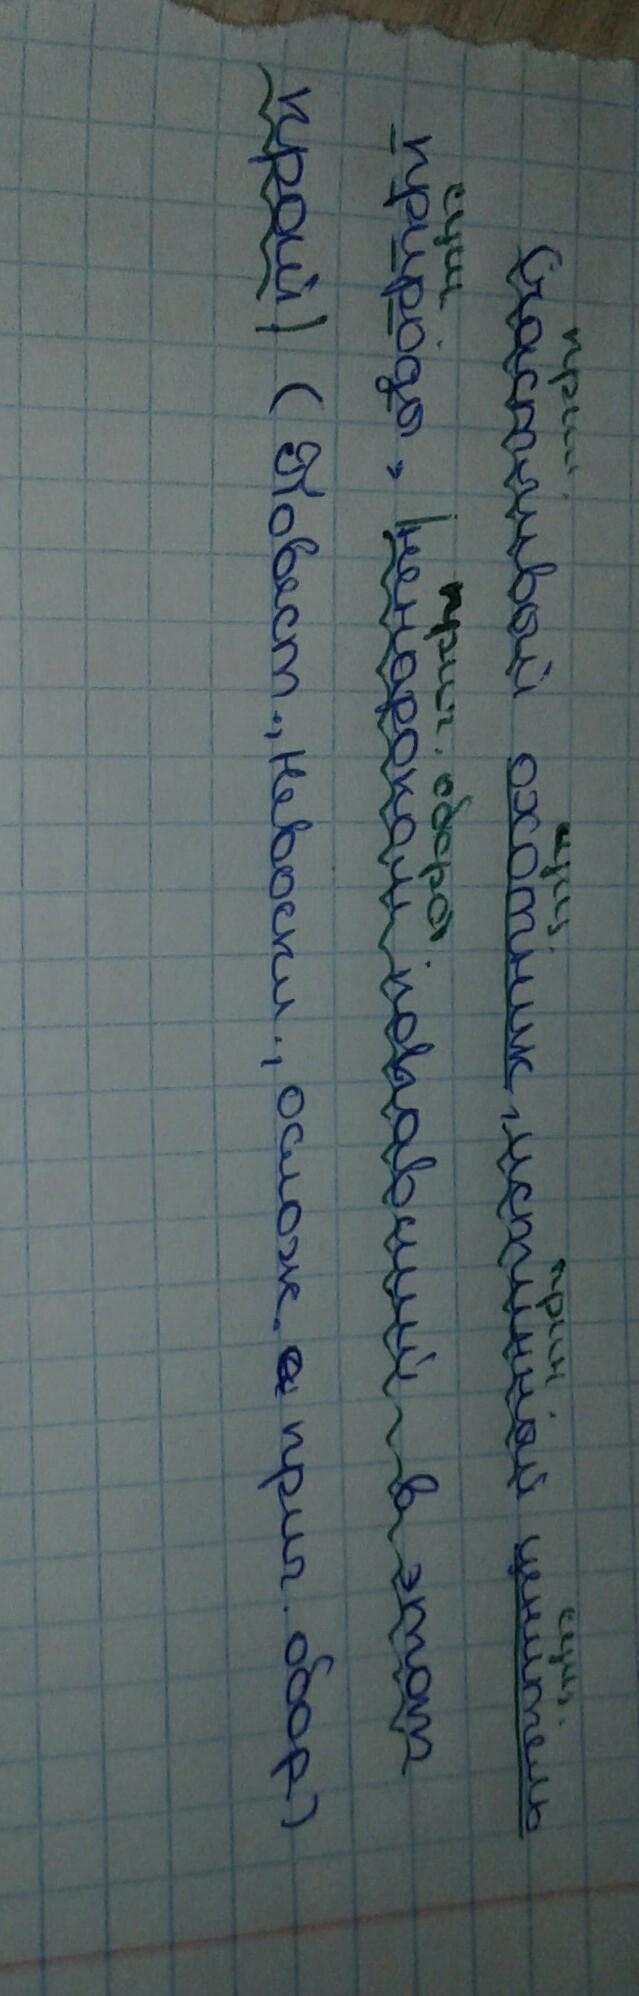 прил. сущ. прил сущ.
Счастливой охотник, истинной ценитель
сущ прич. оборо
природы, |ненароком попавший в этот
край| (Повест, „Невоскл„, ослож. а прич. обор)